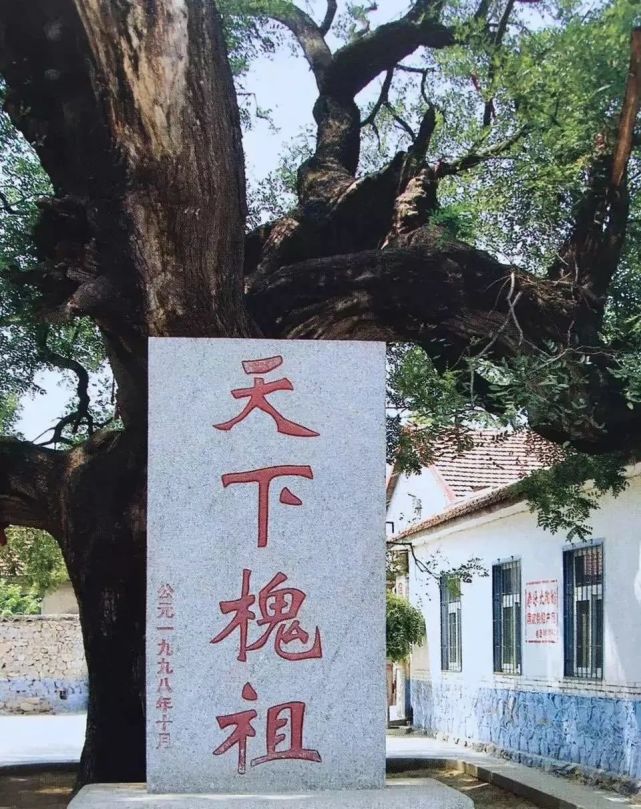 天下槐祖
公元一九九八年十月